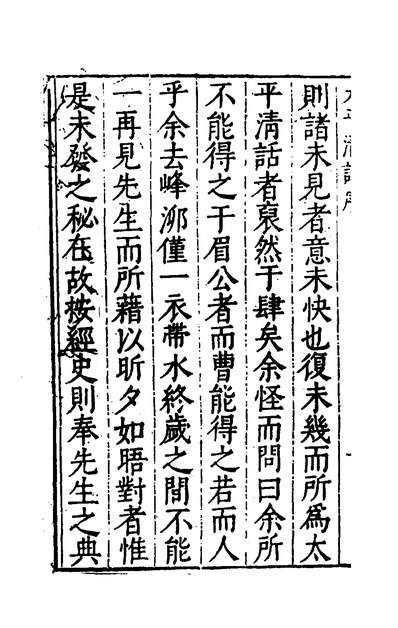 太平清話序
則諸未見者意未快也復未幾而所爲太
平清話者裒然于肆矣余怪而問曰余所
不能得之于眉公者而曹能得之若而人
乎余去峰泖僅一衣帶水終歲之間不能
一再見先生而所藉以昕夕如晤對者惟
是未發之秘在故按經史則奉先生之典